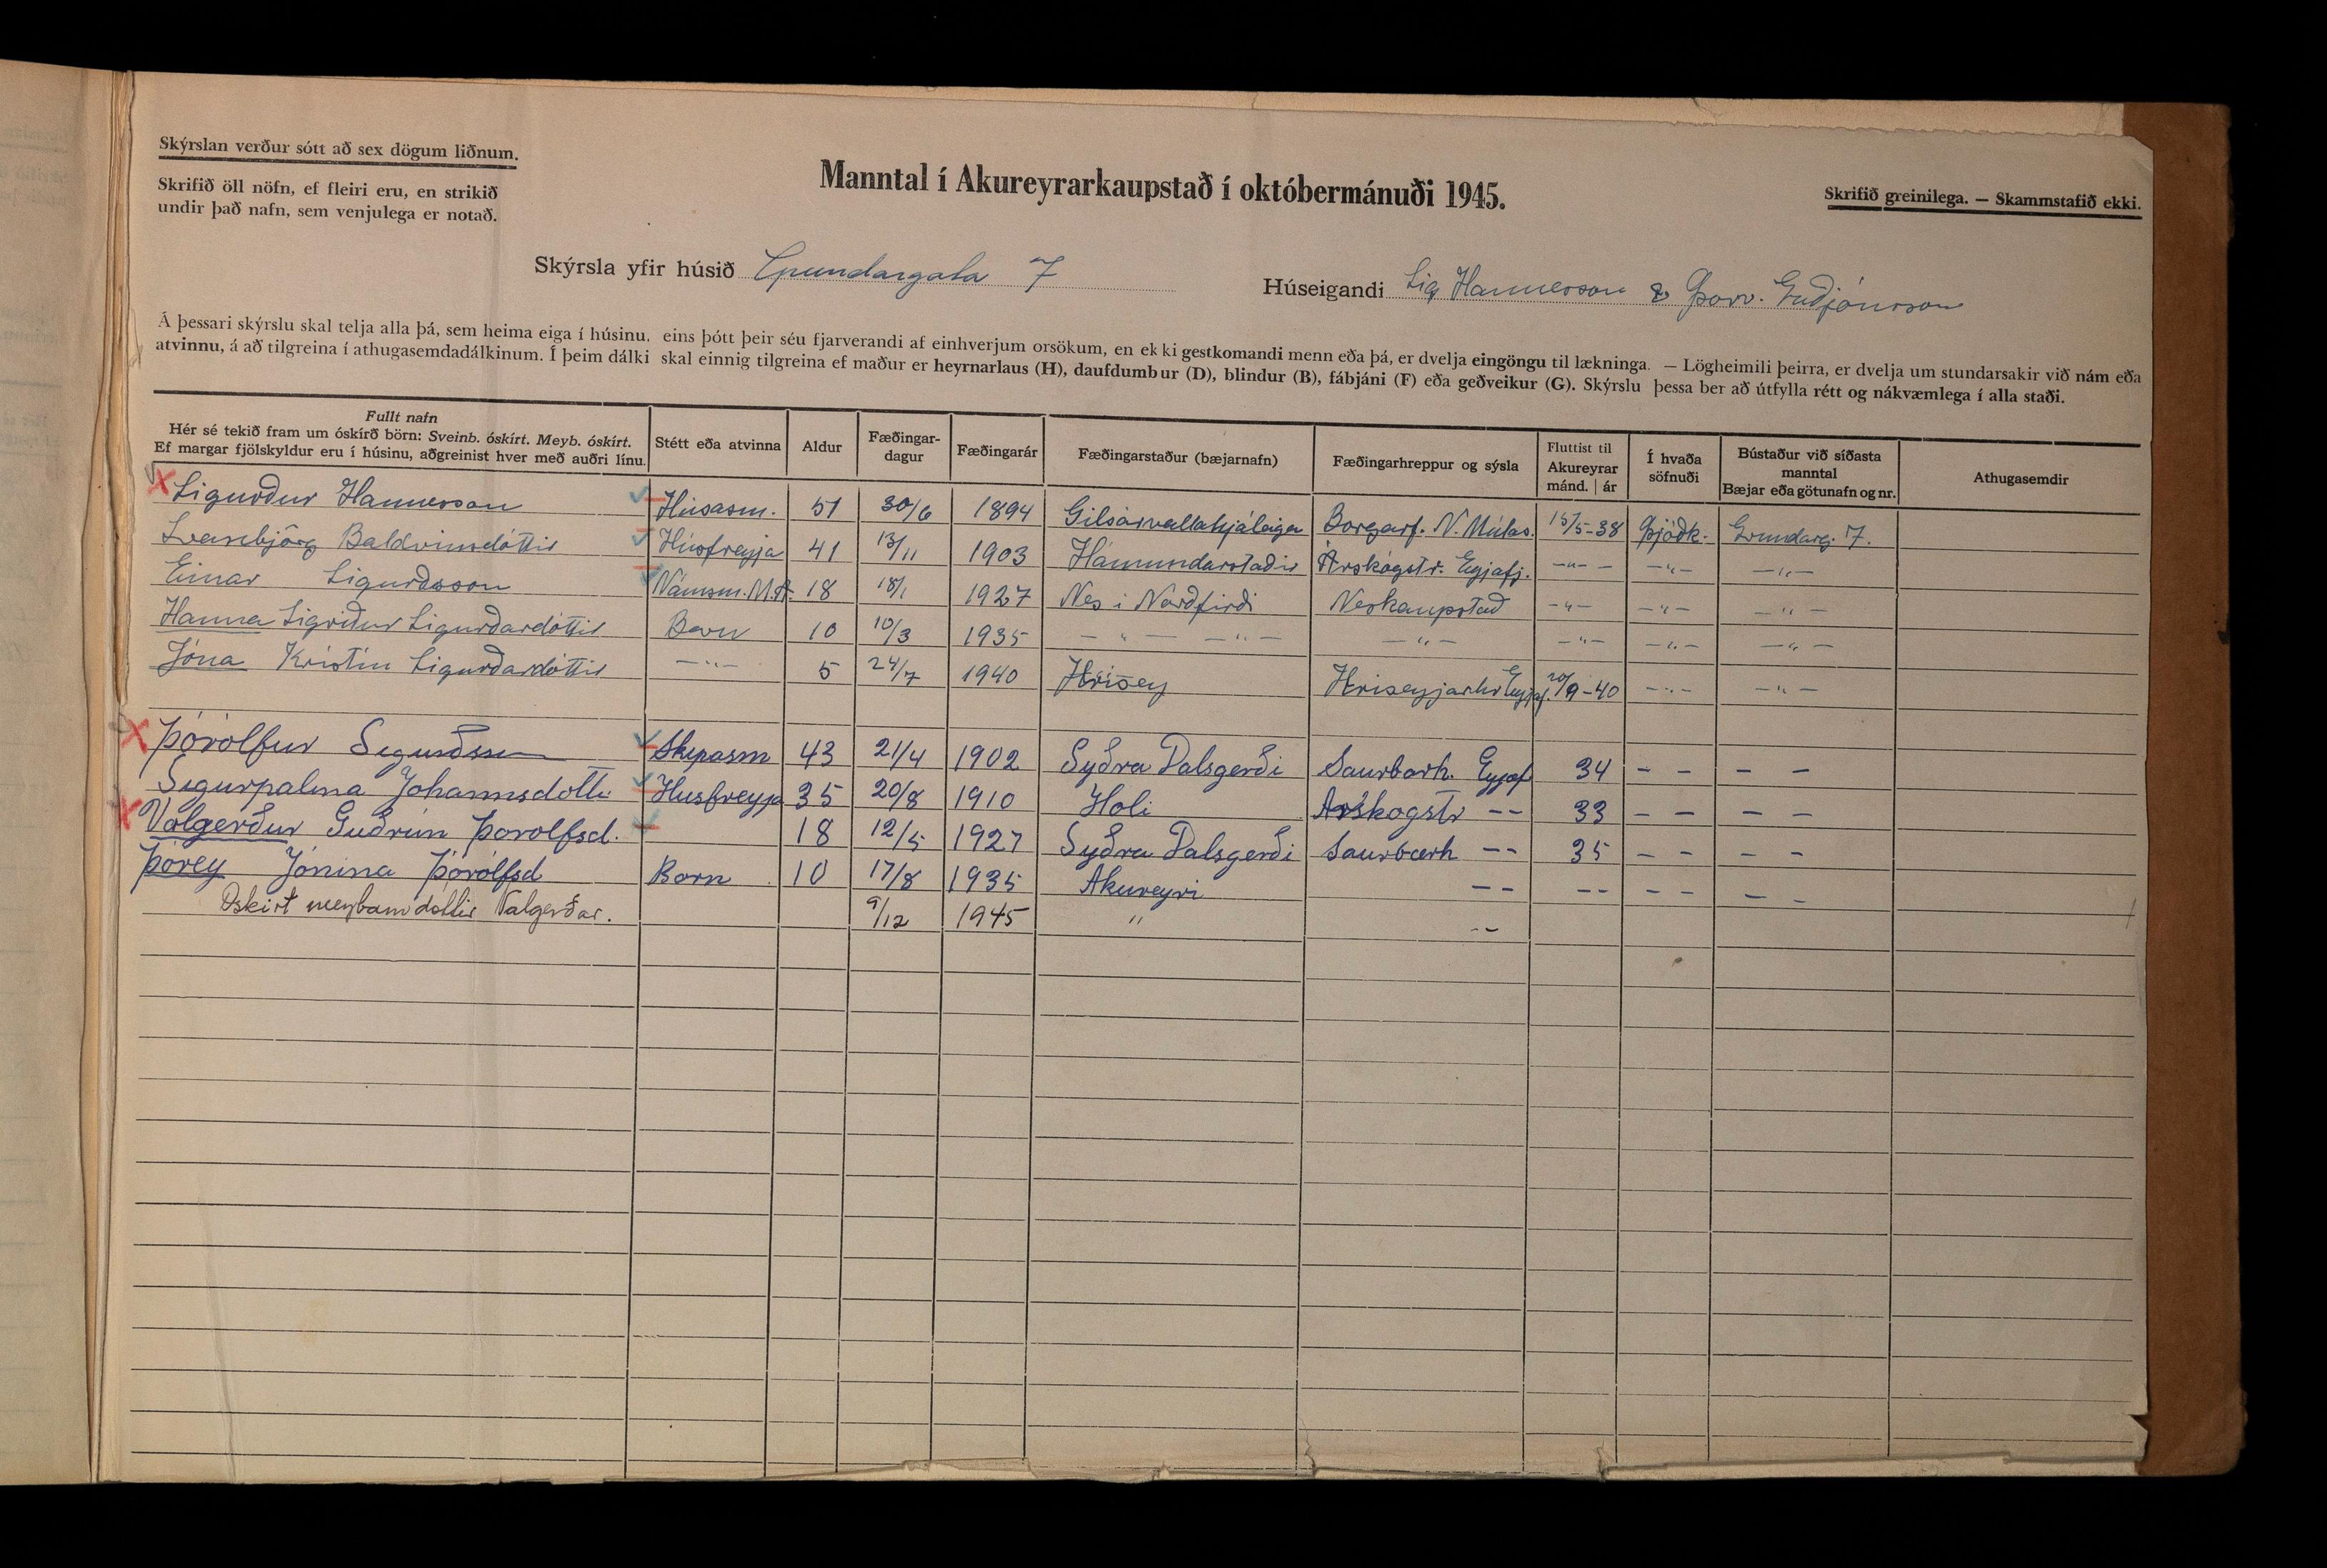 Skýrslan verður sótt að sex dögum liðnum.
Skrifið öll nöfn, ef fleiri eru, en strikið
undir það nafn, sem venjulega er notað.
Manntal í Akureyrarkaupstað í októbermánuði 1945.
Skrifið greinilega. — Skammstafið ekki.
Skýrsla yfir húsið Grundargata 7
Húseigandi Sig Hannesson & Þorv. Guðjónsson
Á þessari skýrslu skal telja alla þá, sem heima eiga í húsinu, eins þótt þeir séu fjarverandi af einhverjum orsökum, en ekki gestkomandi menn eða þá, er dvelja eingöngu til lækninga. — Lögheimili þeirra, er dvelja um stundarsakir við nám eða
atvinnu, á að tilgreina í athugasemdadálkinum. Í þeim dálki skal einnig tilgreina ef maður er heyrnarlaus (H), daufdumbur (D), blindur (B), fábjáni (F) eða geðveikur (G). Skýrslu þessa ber að útfylla rétt og nákvæmlega í alla staði.
Fullt nafn
Hér sé tekið fram um óskírð börn: Sveinb. óskírt. Meyb. óskírt.
Ef margar fjölskyldur eru í húsinu, aðgreinist hver með auðri línu.
Stétt eða atvinna
Aldur
Fæðingar-
dagur
Fæðingarár
Fæðingarstaður (bæjarnafn)
Fæðingarhreppur og sýsla
Fluttist til
Akureyrar
mánd. | ár
Í hvaða
söfnuði
Bústaður við síðasta
manntal
Bæjar eða götunafn og nr.
Athugasemdir
Sigurður Hannesson Húsasm. 51 30/6 1894 Gilsárvallahjáleiga Borgarf. N. Múlas. 15/5-38 Þjóðk. Grundarg. 7.
Sveinbjörg Baldvinsdóttir Húsfreyja 41 13/11 1903 Hámundarstaðir Árskógstr. Eyjafj. -"- -"- -"-
Einar Sigurðsson Námsm. M.A. 18 18/1 1927 Nes í Norðfirði Neskaupstað -"- -"- -"-
Hanna Sigríður Sigurðardóttir Barn 10 10/3 1935 -"- -"- -"- -"- -"- -"-
Jóna Kristín Sigurðardóttir -"- 5 24/7 1940 Hrísey Hríseyjarhr Eyjaf. 20/9-40 -"- -"-
Þórólfur Sigurðsson Skipasm 43 21/4 1902 Syðra Dalsgerði Saurbærh. Eyjaf 34 - - - -
Sigurpálína Jóhannsdóttir Húsfreyja 35 20/8 1910 Holi Arskogstr -- 33 - - - -
Valgerður Guðrún Þorolfsd. 18 12/5 1927 Syðra Dalsgerði Saurbærh -- 35 - - - -
Þórey Jónína Þórólfsd Barn 10 17/8 1935 Akureyri -- -- - - - -
Óskírt meybarn dóttir Valgerðar. 9/12 1945 " --